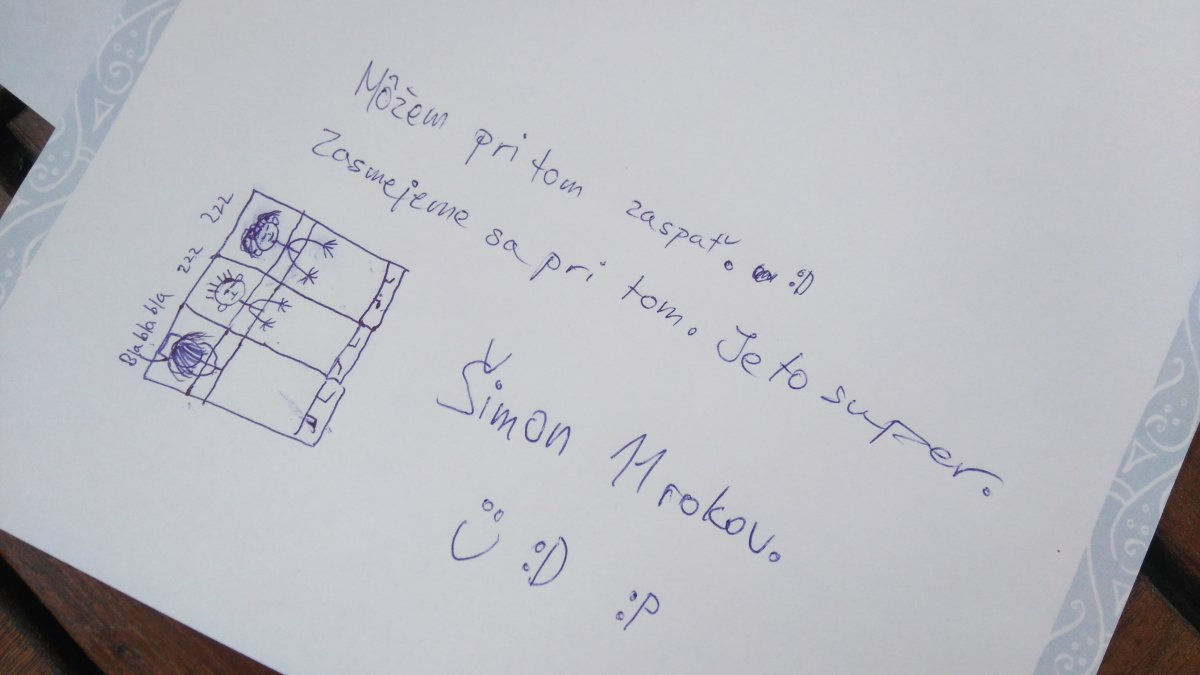 Môžem pri tom zaspať. :D
Zasmejeme sa pri tom. Je to super.
Šimon 11 rokov.
:D :P
zzz
zzz
Blablabla